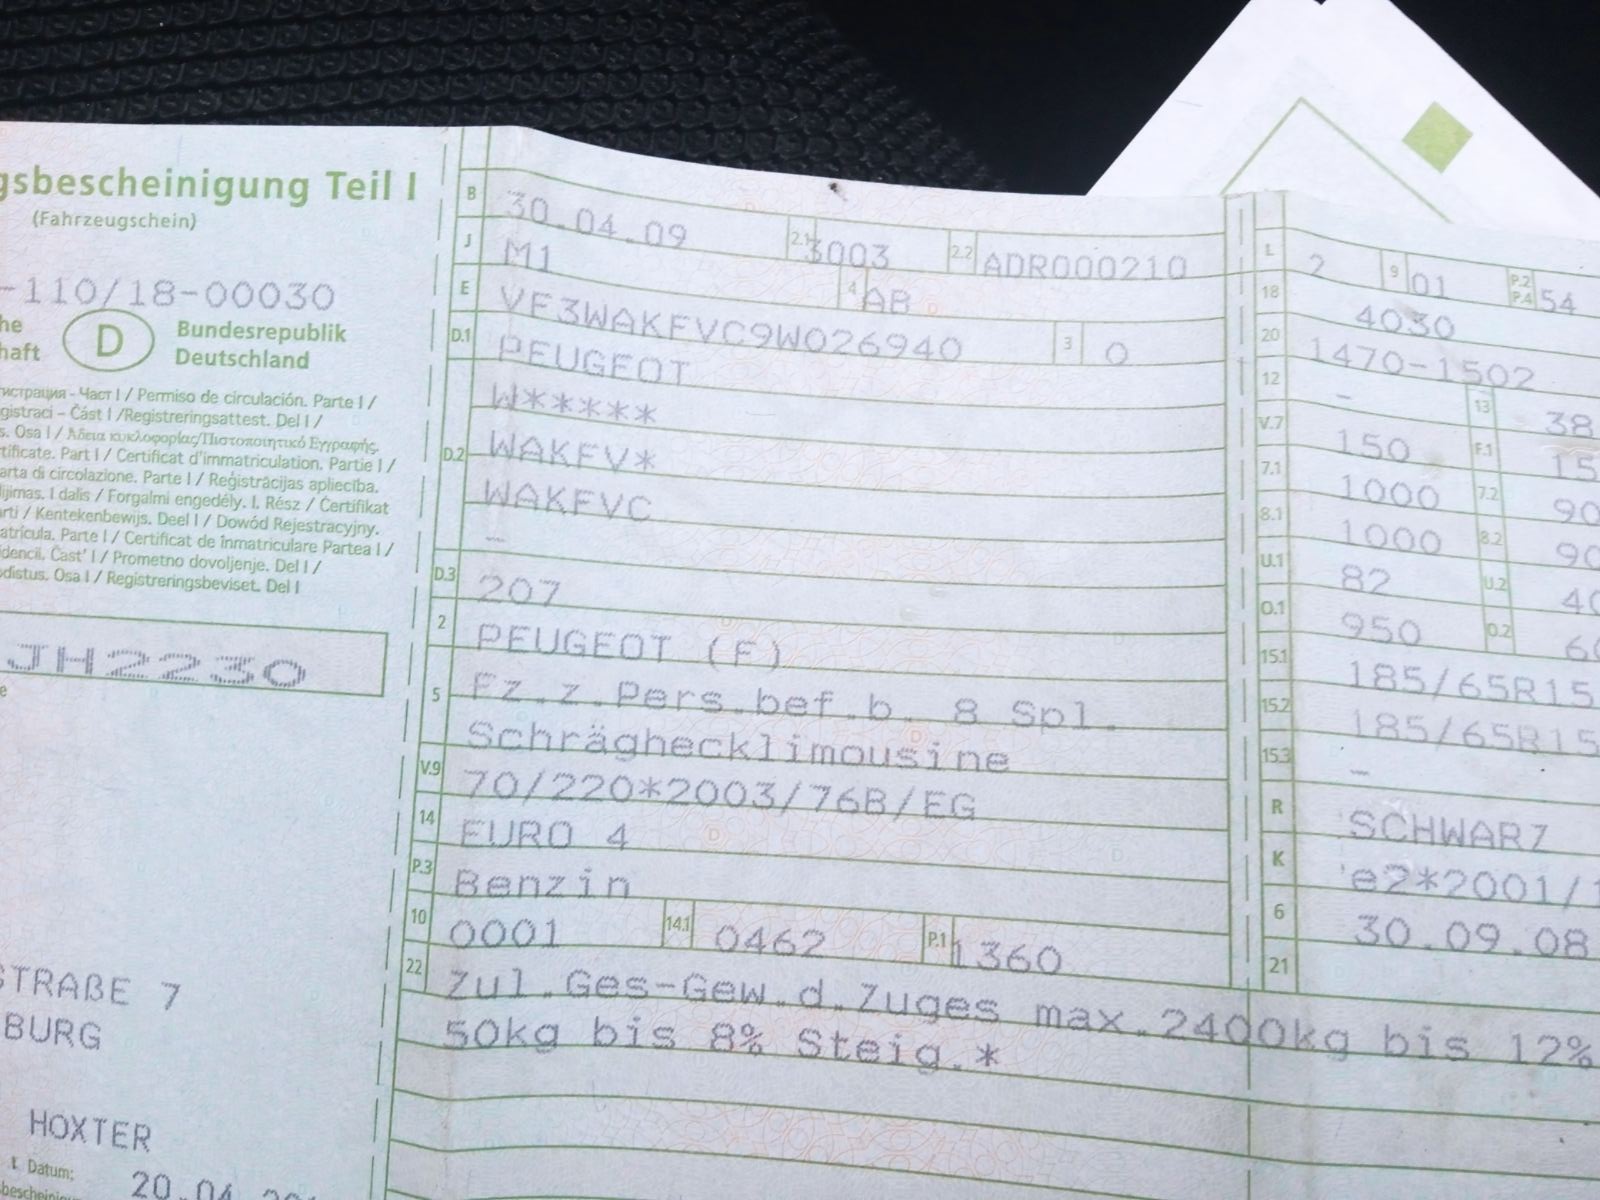 gsbescheinigung Teil I
(Fahrzeugschein)
-110/18-00030
D
Bundesrepublik
Deutschland
haft
Част I / Permiso de circulación. Parte I /
Část I /Registreringsattest. Del I /
s. Osa I / Άδεια κυκλοφορίας/Πιστοποιητικό Εγγραφής.
tificate. Part I / Certificat d'immatriculation. Partie I /
arta di circolazione. Parte I / Reģistrācijas apliecība.
I dalis / Forgalmi engedély. I. Rész / Ċertifikat
Kentekenbewijs. Deel I / Dowód Rejestracyjny.
atrícula. Parte I / Certificat de înmatriculare Partea I /
Časť I / Prometno dovoljenje. Del I /
Osa I / Registreringsbeviset. Del I
JH2230
STRAßE 7
BURG
HOXTER
Datum:
20.04.
B 30.04.09 2.1 3003 2.2 ADR000210
J M1 4 AB
E VF3WAKFVC9W026940 3 0
D.1 PEUGEOT
W*****
D.2 WAKFV*
WAKFVC
-
D.3 207
2 PEUGEOT (F)
5 Fz.z.Pers.bef.b. 8 Spl.
Schräghecklimousine
V.9 70/220*2003/76B/EG
14 EURO 4
P.3 Benzin
10 0001 14.1 0462 P.1 1360
22 Zul.Ges-Gew.d.Zuges max.2400kg bis 12%
50kg bis 8% Steig.*
L 2 9 01 P.2 P.4 54
18 4030
20 1470-1502
12 - 13 38
V.7 150 F.1 15
7.1 1000 7.2 90
8.1 1000 8.2 90
U.1 82 U.2 40
O.1 950 O.2 60
15.1 185/65R15
15.2 185/65R15
15.3 -
R SCHWARZ
K e2*2001/1
6 30.09.08
21